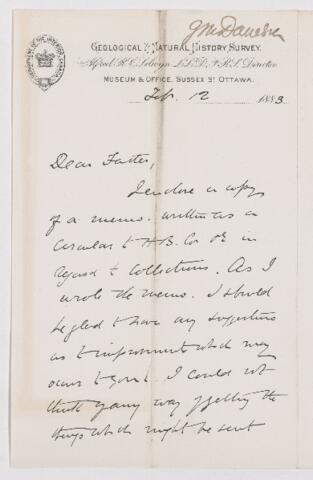 Geological & Natural History Survey.
Alfred R. C. Selwyn L.L.D; F.R.S. Director
Museum & Office, Sussex St Ottawa.
Feb. 12 1883
Dear Father,
I enclose a copy
of a memo. written as a
Circular to H.B. Co in
regard to Collections. As I
wrote the memo. I should
be glad to have any suggestions
as to improvement which may
occur to you. I could not
think of any way of getting the
things which might be sent